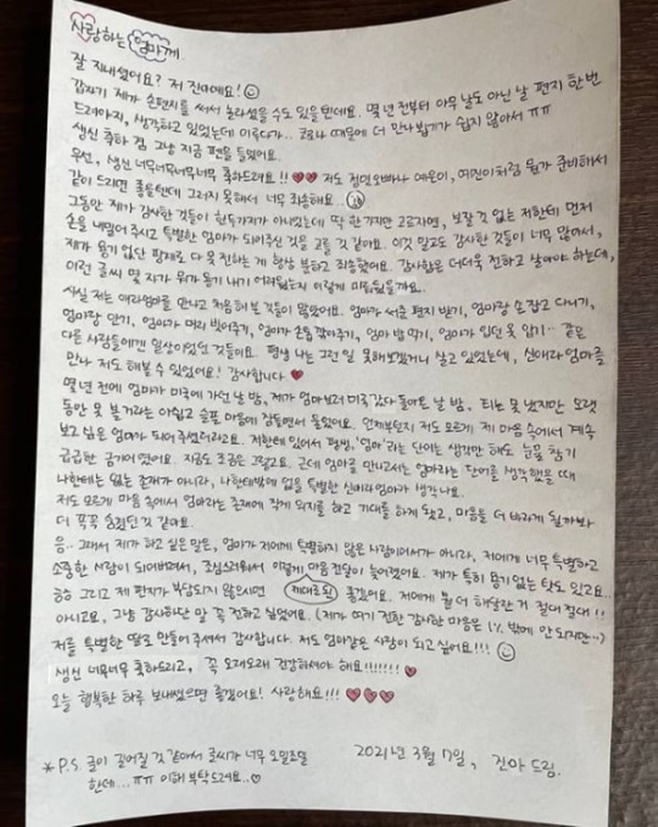 사랑하는 엄마께
잘 지내셨어요? 저 진아예요!
갑자기 제가 손편지를 써서 놀라셨을 수도 있을텐데요. 몇 년 전부터 아무 날도 아닌 날 편지 한번
드려야지, 생각하고 있었는데 이루다가.. 코로나 때문에 더 만나뵙기가 쉽지 않아서 ㅠㅠ
생신 축하 겸 그냥 지금 펜을 들었어요.
우선, 생신 너무너무너무너무 축하드려요!! 저도 정민오빠나 예은이, 예진이처럼 뭔가 준비해서
같이 드리면 좋을텐데 그러지 못해서 너무 죄송해요..
그동안 제가 감사한 것들이 한두가지가 아니었는데 딱 한가지만 고르자면, 보잘 것 없는 저한테 먼저
손을 내밀어 주시고 특별한 엄마가 되어주신 것을 고를 것 같아요. 이것 말고도 감사한 것들이 너무 많아서,
제가 용기 없단 핑계로 다 못 전하는 게 항상 분하고 죄송했어요. 감사함은 더더욱 전하고 살아야 하는데,
이런 글씨 몇 자가 뭐가 용기 내기 어려웠는지 이렇게 미뤄뒀을까요..
사실 저는 애라엄마를 만나고 처음 해 본 것들이 많았어요. 엄마가 써준 편지 받기, 엄마랑 손 잡고 다니기,
엄마랑 안기, 엄마가 머리 빗어주기, 엄마가 손톱 깎아주기, 엄마 밥 먹기, 엄마가 입던 옷 입기.. 같은
다른 사람들에겐 일상이었던 것들이요. 평생 나는 그런 일 못해보겠거니 살고 있었는데, 신애라엄마를
만나 저도 해볼 수 있었어요! 감사합니다
몇 년 전에 엄마가 미국에 가신 날 밤, 제가 엄마보러 미국갔다 돌아온 날 밤, 티는 못 냈지만 오랫
동안 못 볼거라는 아쉽고 슬픈 마음에 잠들면서 울었어요. 언제부턴지 저도 모르게 제 마음 속에서 계속
보고 싶은 엄마가 되어 주셨더라고요. 저한테 있어서 평생, '엄마'라는 단어는 생각만 해도 눈물 참기
급급한 금기어였어요. 지금도 조금은 그렇고요. 근데 엄마를 만나고서는 엄마라는 단어를 생각했을 때
나한테는 없는 존재가 아니라, 나한테밖에 없을 특별한 신애라엄마가 생각나요.
저도 모르게 마음 속에서 엄마라는 존재에 작게 의지를 하고 기대를 하게 됐고, 마음을 더 바라게 될까봐
더 꾹꾹 숨겼던 것 같아요.
음.. 그래서 제가 하고 싶은 말은, 엄마가 저에게 특별하지 않은 사람이어서가 아니라, 저에게 너무 특별하고
소중한 사람이 되어버려서, 조심스러워서 이렇게 마음 전달이 늦어졌어요. 제가 특히 용기 없는 탓도 있고요..
ㅎㅎ 그리고 제 편지가 부담되지 않으시면 제대로된 좋겠어요. 저에게 뭘 더 해달란 거 절대 절대!!
아니고요, 그냥 감사하단 말 꼭 전하고 싶었어요. (제가 여기 전한 감사한 마음은 1% 밖에 안 되지만..)
저를 특별한 딸로 만들어 주셔서 감사합니다. 저도 엄마같은 사람이 되고 싶어요!!!
생신 너무너무 축하드리고, 꼭 오래오래 건강하셔야 해요!!!!!!!
오늘 행복한 하루 보내셨으면 좋겠어요! 사랑해요!!!
2021년 3월 7일, 진아 드림.
*P.S. 글이 길어질 것 같아서 글씨가 너무 오밀조밀
한데...ㅠㅠ 이해 부탁드려요..♡